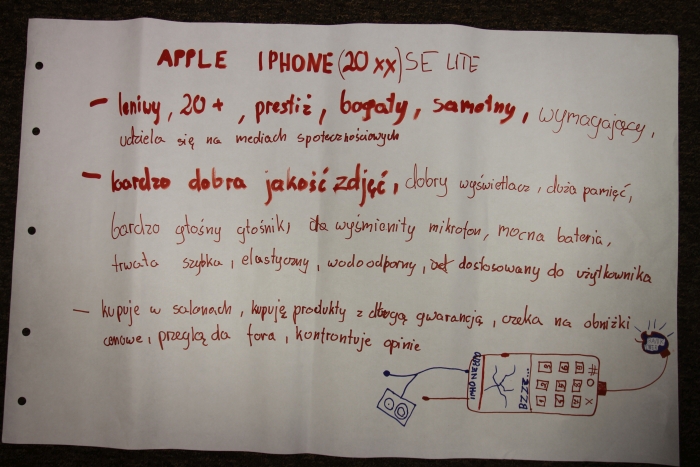 APPLE IPHONE (20xx) SE LITE
- leniwy, 20+, prestiż, bogaty, samotny, wymagający,
udziela się na mediach społecznościowych
- bardzo dobra jakość zdjęć, dobry wyświetlacz, duża pamięć,
bardzo głośny głośnik, wyśmienity mikrofon, mocna bateria,
trwała szybka, elastyczny, wodoodporny, dostosowany do użytkownika
- kupuje w salonach, kupuję produkty z długą gwarancją, czeka na obniżki
cenowe, przegląda fora, kontrontuje opinie